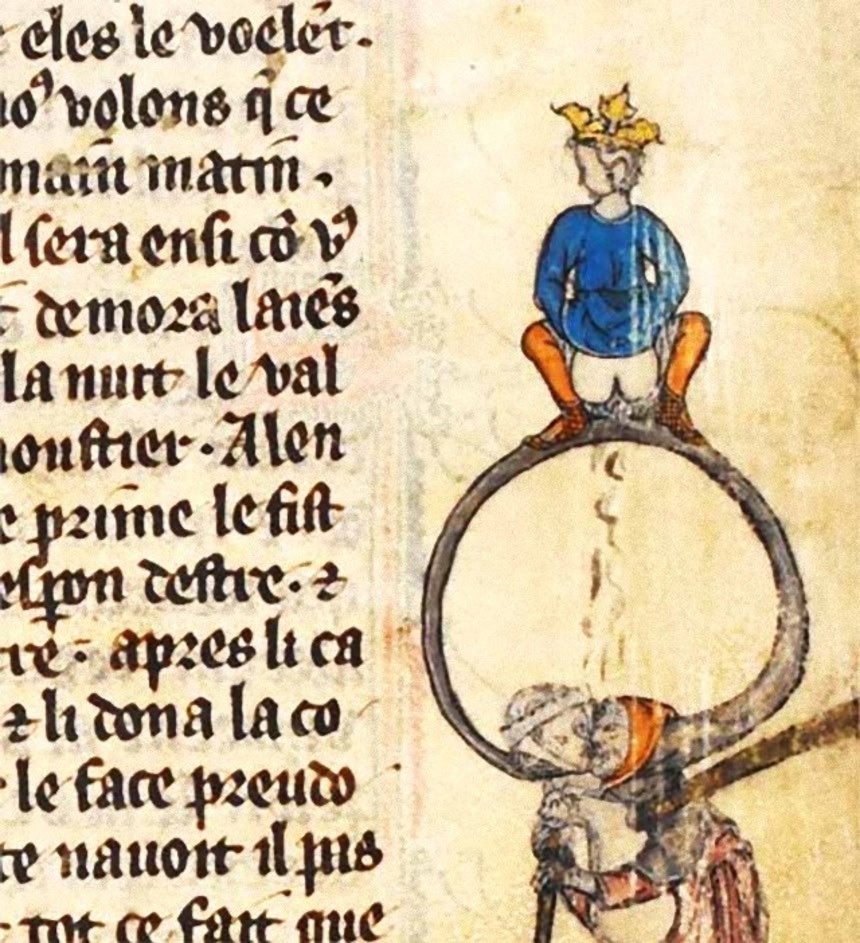 eles le voelēt.
no⁹ volons q̄ ce
main matin.
il sera ensi cō v⁹
demora laiēs
la nuit le val
moustier. Alen
prime le fist
esꝑon destre. ⁊
tre. apres li ca
⁊ li dona la co
le face preudo
te nauoit il pas
tot ce fait que